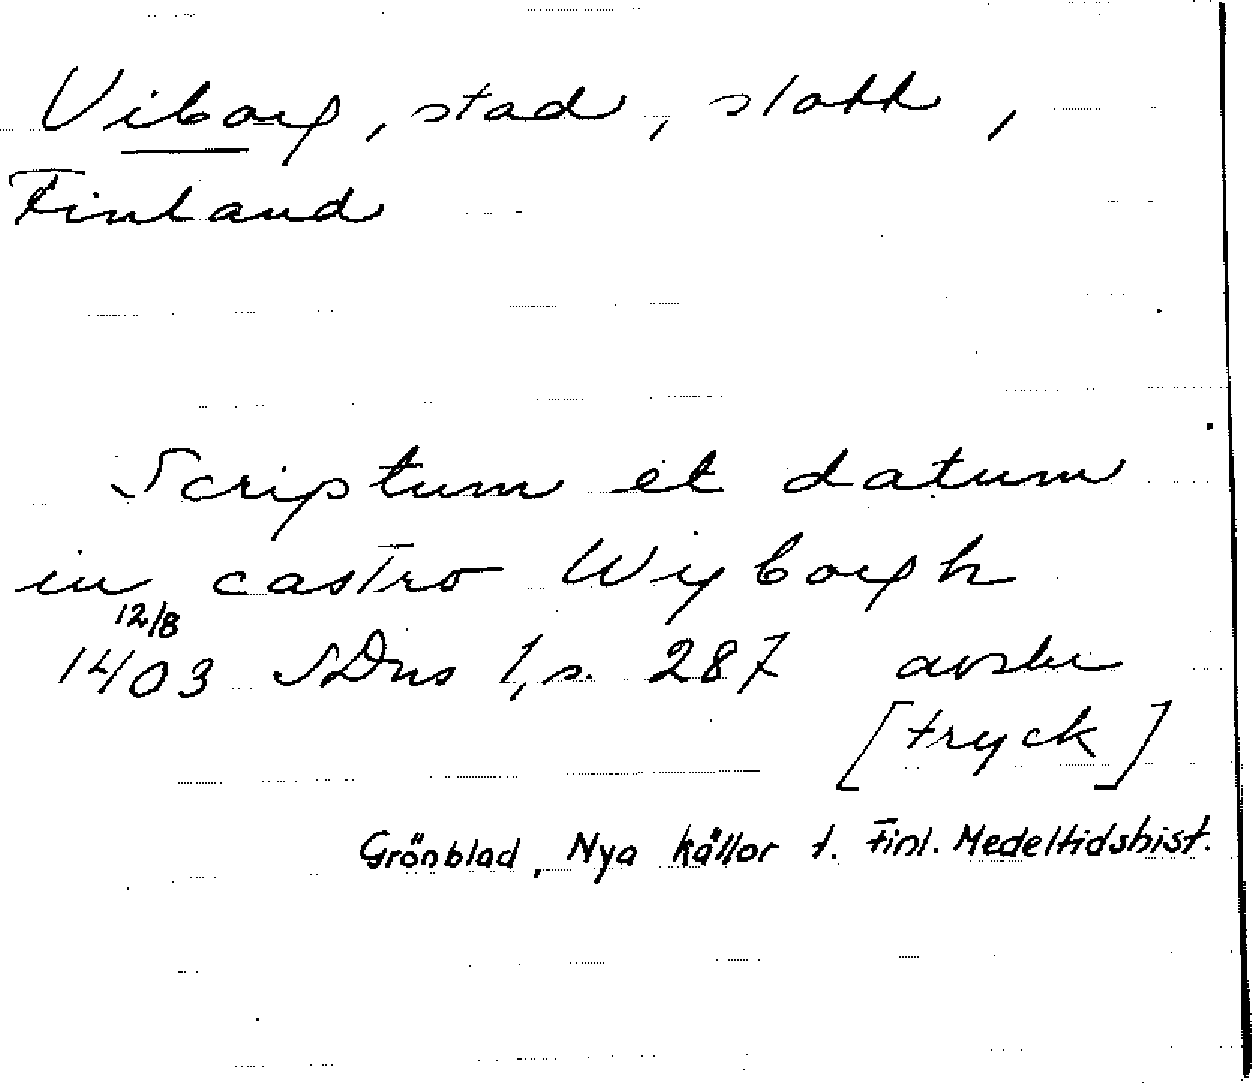 Viborg, stad, slott,
Finland
Scriptum et datum
in castro Wyborgh
12/8
1403 SDns 1, s. 287 avskr
[tryck]
Grönblad, Nya källor t. Finl. Medeltidshist.